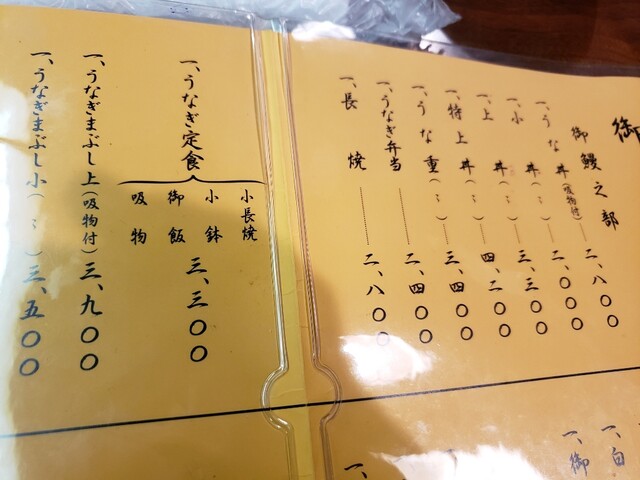 御
御鰻之部
一、うな丼(吸物付)二、八〇〇
一、小丼(〃)二、〇〇〇
一、上丼(〃)三、三〇〇
一、特上丼(〃)四、二〇〇
一、うな重(〃)三、四〇〇
一、うなぎ弁当 二、四〇〇
一、長焼 二、八〇〇
一、うなぎ定食
小長焼
小鉢
御飯
吸物
三、三〇〇
一、うなぎまぶし上(吸物付)三、九〇〇
一、うなぎまぶし小(〃)三、五〇〇
一、白
一、御
一、